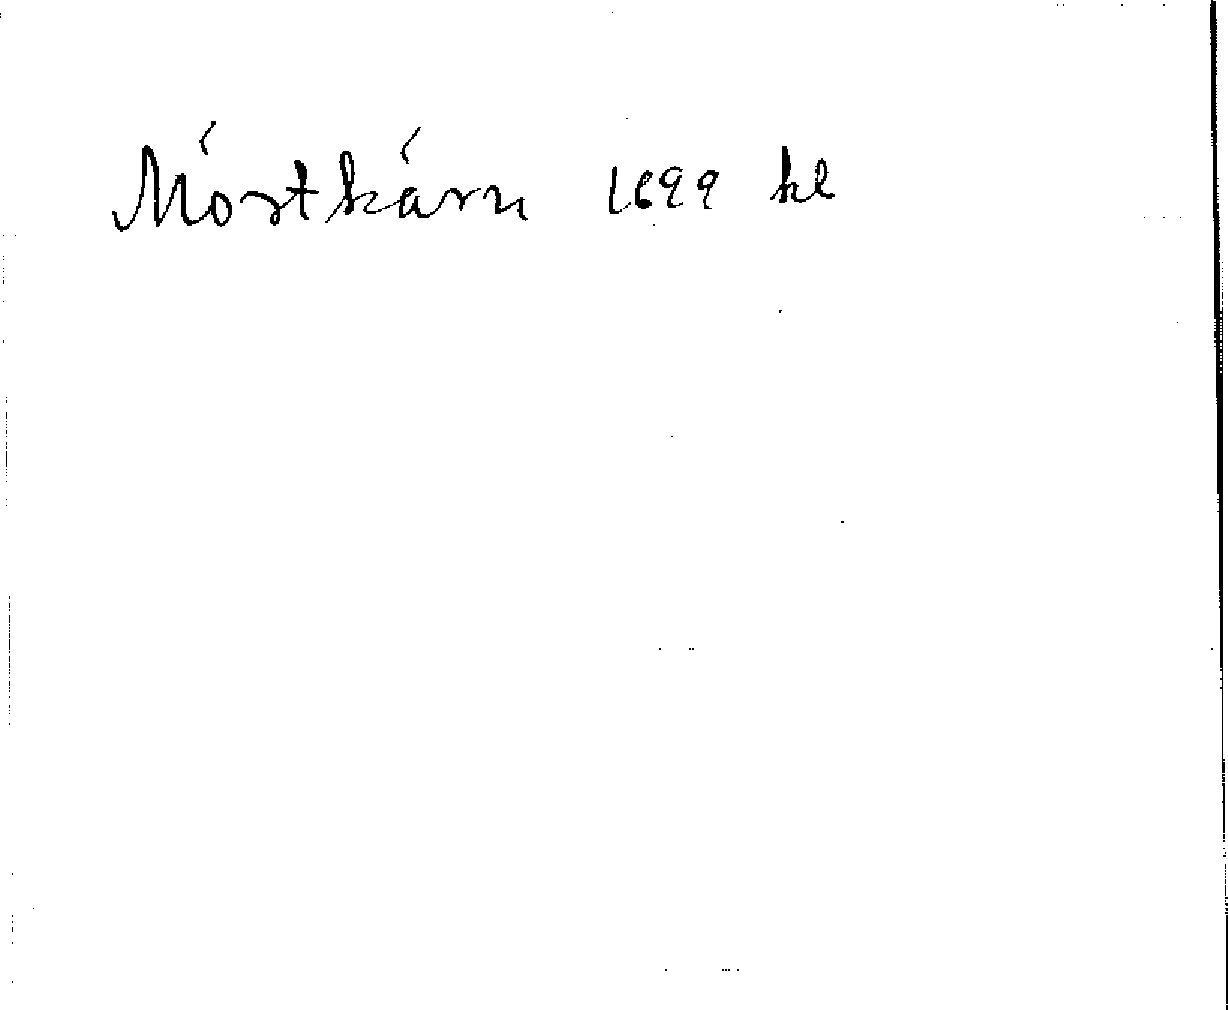 Móstkárn 1699 kl